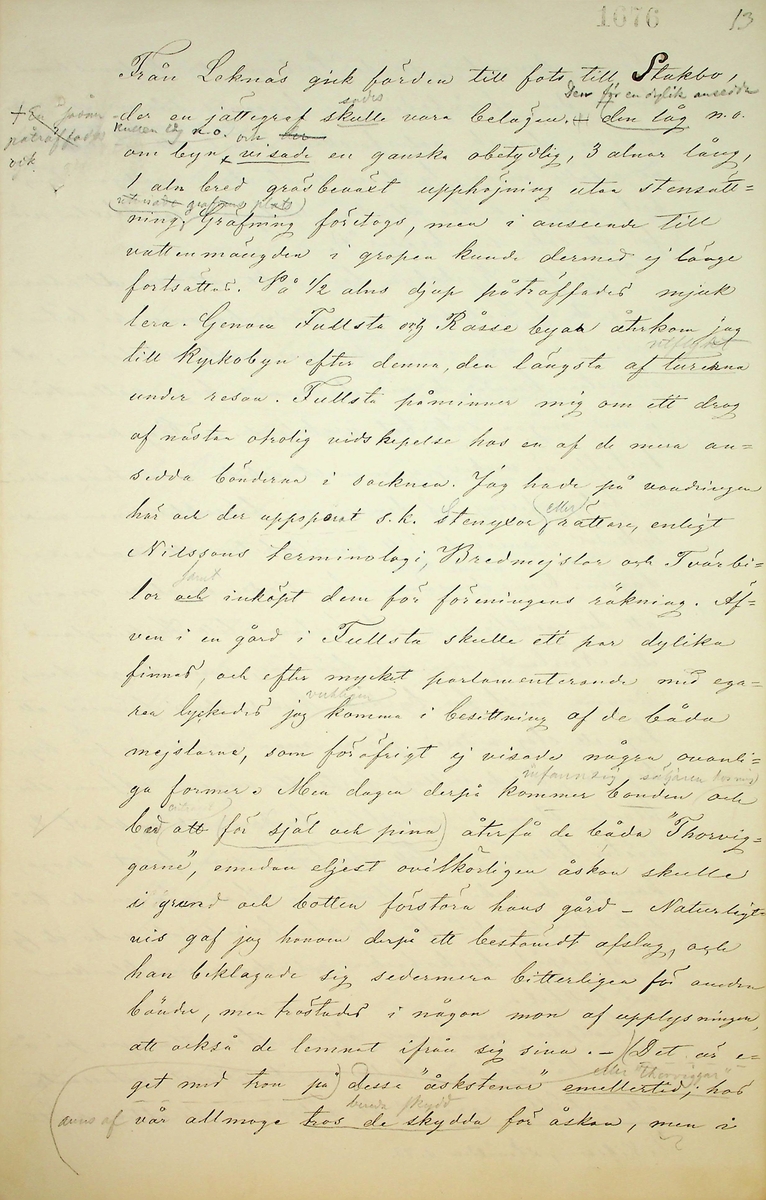 1076
13
Från Leknäs gick färden till fots till Stakbo,
sades Den för en dylik ansedda
der en jättegraf skulle vara belägen. den låg n.o.
kullen låg n.o. och
om byn, visade en ganska obetydlig, 3 alnar lång,
1 aln bred gräsbeväxt upphöjning utan stensätt=
utmärkte grafvens plats
ning. Gräfning företogs, men i anseende till
vattenmängden i gropen kunde dermed ej länge
fortsättas. På 1/2 alns djup påträffades mjuk
lera. Genom Fullsta och Råsse byar återkom jag
utflykt
till kyrkobyn efter denna, den längsta af turerna
under resan. Fullsta påminner mig om ett drag
af nästan otrolig vidskepelse hos en af de mera an=
sedda bönderna i socknen. Jag hade på vandringen
eller
här och der uppsporat s.k. stenyxor rättare, enligt
Nilssons terminologi, Bredmejslar och Tvärbi=
samt
lor och inköpt dem för föreningens räkning. Äf=
ven i en gård i Fullsta skulle ett par dylika
finnas, och efter mycket parlamenterande med ega=
verkligen
ren lyckades jag komma i besittning af de båda
mejslarne, som föröfrigt ej visade några ovanli=
infann sig
ga former. Men dagen derpå kommer bonden och
bad att för själ och pina återfå de båda "Thorvig=
garne", emedan eljest ovilkorligen åskan skulle
i grund och botten förstöra hans gård – Naturligt=
vis gaf jag honom derpå ett bestämdt afslag, och
han beklagade sig sedermera bitterligen för andra
bönder, men tröstades i någon mon af upplysningen,
att också de lemnat ifrån sig sina. – Det är e=
eller "Thorviggar"
get med tron på desse "åskstenar" emellertid; hos
anses af
vår allmoge tros de skydda för åskan, men i